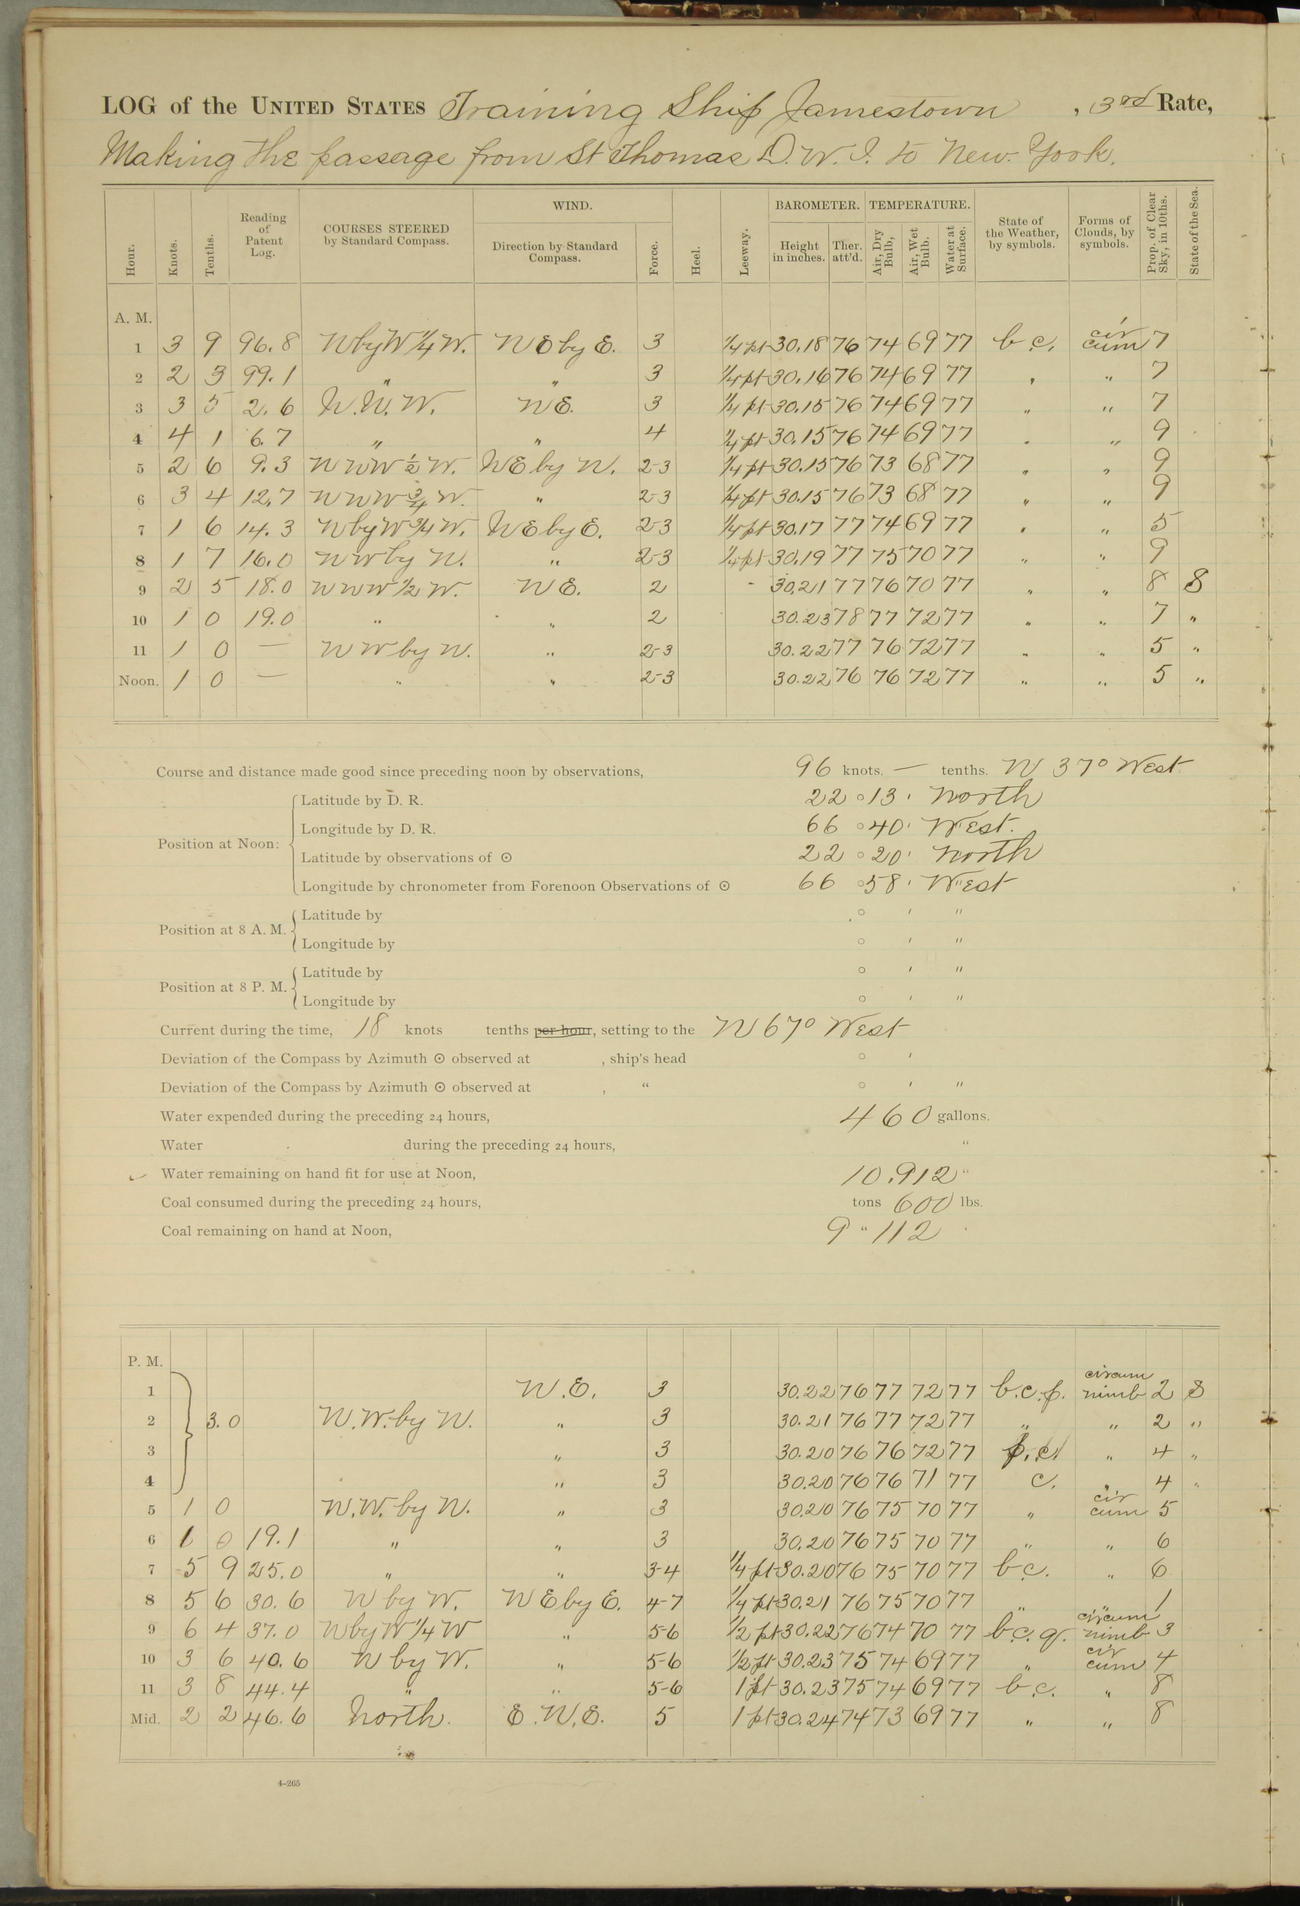 LOG of the UNITED STATES Training Ship Jamestown, 3rd Rate,
Making the passage from St Thomas D. W. I. to New York.
Hour. Knots. Tenths. Reading of Patent Log. COURSES STEERED by Standard Compass. WIND. Direction by Standard Compass. Force. Heel. Leeway. BAROMETER. Height in inches. Ther. att'd. TEMPERATURE. Air, Dry Bulb, Air, Wet Bulb. Water at Surface. State of the Weather, by symbols. Forms of Clouds, by symbols. Prop. of Clear Sky, in 10ths. State of the Sea.
A. M.
1 3 9 96.8 N by W 1/4 W. N E by E. 3 1/4 pt 30.18 76 74 69 77 b c. cir cum 7
2 2 3 99.1 " " 3 1/4 pt 30.16 76 74 69 77 " " 7
3 3 5 2.6 N. N. W. N E. 3 1/4 pt 30.15 76 74 69 77 " " 7
4 4 1 6.7 " " 4 1/4 pt 30.15 76 74 69 77 " " 9
5 2 6 9.3 N N W 1/2 W. N E by N. 2-3 1/4 pt 30.15 76 73 68 77 " " 9
6 3 4 12.7 N N W 3/4 W. " 2-3 1/4 pt 30.15 76 73 68 77 " " 9
7 1 6 14.3 N by W 3/4 W. N E by E. 2-3 1/4 pt 30.17 77 74 69 77 " " 5
8 1 7 16.0 N W by N. " 2-3 1/4 pt 30.19 77 75 70 77 " " 9
9 2 5 18.0 N N W 1/2 W. N E. 2 - 30.21 77 76 70 77 " " 8 S
10 1 0 19.0 " " 2 30.23 78 77 72 77 " " 7 "
11 1 0 — N W by N. " 2-3 30.22 77 76 72 77 " " 5 "
Noon. 1 0 — " " 2-3 30.22 76 76 72 77 " " 5 "
Course and distance made good since preceding noon by observations, 96 knots. — tenths. N 37° West
Position at Noon: Latitude by D. R. 22 ° 13 ' North
Longitude by D. R. 66 ° 40 ' West.
Latitude by observations of ⊙ 22 ° 20 ' North
Longitude by chronometer from Forenoon Observations of ⊙ 66 ° 58 ' West
Position at 8 A. M. Latitude by ° ' "
Longitude by ° ' "
Position at 8 P. M. Latitude by ° ' "
Longitude by ° ' "
Current during the time, 18 knots tenths per hour, setting to the N 67° West
Deviation of the Compass by Azimuth ⊙ observed at , ship's head ° '
Deviation of the Compass by Azimuth ⊙ observed at , " ° ' "
Water expended during the preceding 24 hours, 460 gallons.
Water during the preceding 24 hours, "
Water remaining on hand fit for use at Noon, 10.912 "
Coal consumed during the preceding 24 hours, tons 600 lbs.
Coal remaining on hand at Noon, 9 " 112
P. M.
1 N. E. 3 30.22 76 77 72 77 b.c.p. circum nimb 2 S
2 3.0 N. W. by N. " 3 30.21 76 77 72 77 " " 2 "
3 " 3 30.20 76 76 72 77 p.c. " 4 "
4 " 3 30.20 76 76 71 77 c. " 4 "
5 1 0 N. W. by N. " 3 30.20 76 75 70 77 " cir cum 5
6 1 0 19.1 " " 3 30.20 76 75 70 77 " " 6
7 5 9 25.0 " " 3-4 1/4 pt 30.20 76 75 70 77 b c. " 6
8 5 6 30.6 N by W. N E by E. 4-7 1/4 pt 30.21 76 75 70 77 " " 1
9 6 4 37.0 N by W 1/4 W " 5-6 1/2 pt 30.22 76 74 70 77 b.c.q. circum nimb 3
10 3 6 40.6 N by W. " 5-6 1/2 pt 30.23 75 74 69 77 " cir cum 4
11 3 8 44.4 " " 5-6 1 pt 30.23 75 74 69 77 b.c. " 8
Mid. 2 2 46.6 North. E. N. E. 5 1 pt 30.24 74 73 69 77 " " 8
4-265